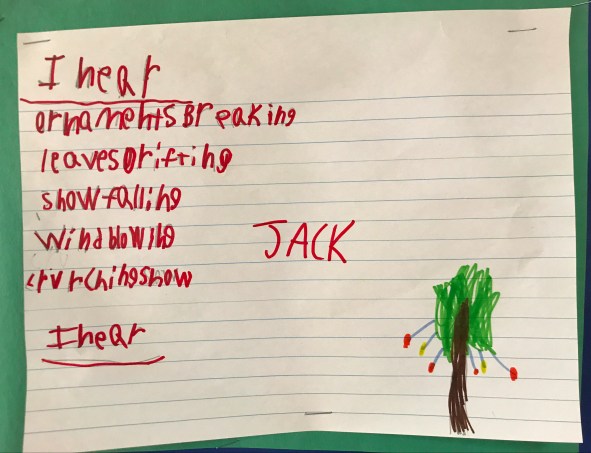 I hear
ornaments Breaking
leaves Drifting
snow falling
Wind blowing
crunching snow
JACK
I hear